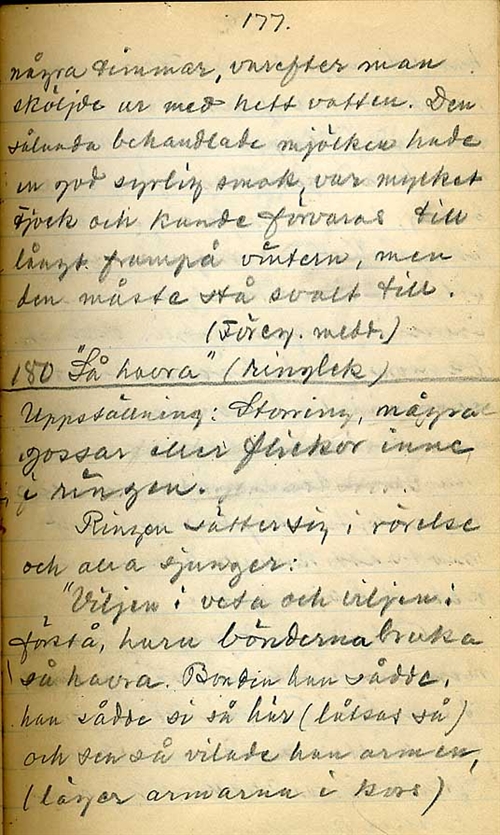 177.
några timmar, varefter man
sköljde ur med hett vatten. Den
sålunda behandlade mjölken hade
en god syrlig smak, var mycket
tjock och kunde förvaras till
långt frampå vintern, men
den måste stå svalt till.
(Föreg. medd.)
180 "Så havra" (ringlek)
Uppställning: Storring, några
gossar eller flickor inne
i ringen.
Ringen sätter sig i rörelse
och alla sjunger:
"Viljen i veta och viljen i
förstå, huru bönderna bruka
så havra. Bonden han sådde,
han sådde si så här (låtsas så)
och sen så vilade han armen,
(läger armarna i kors)